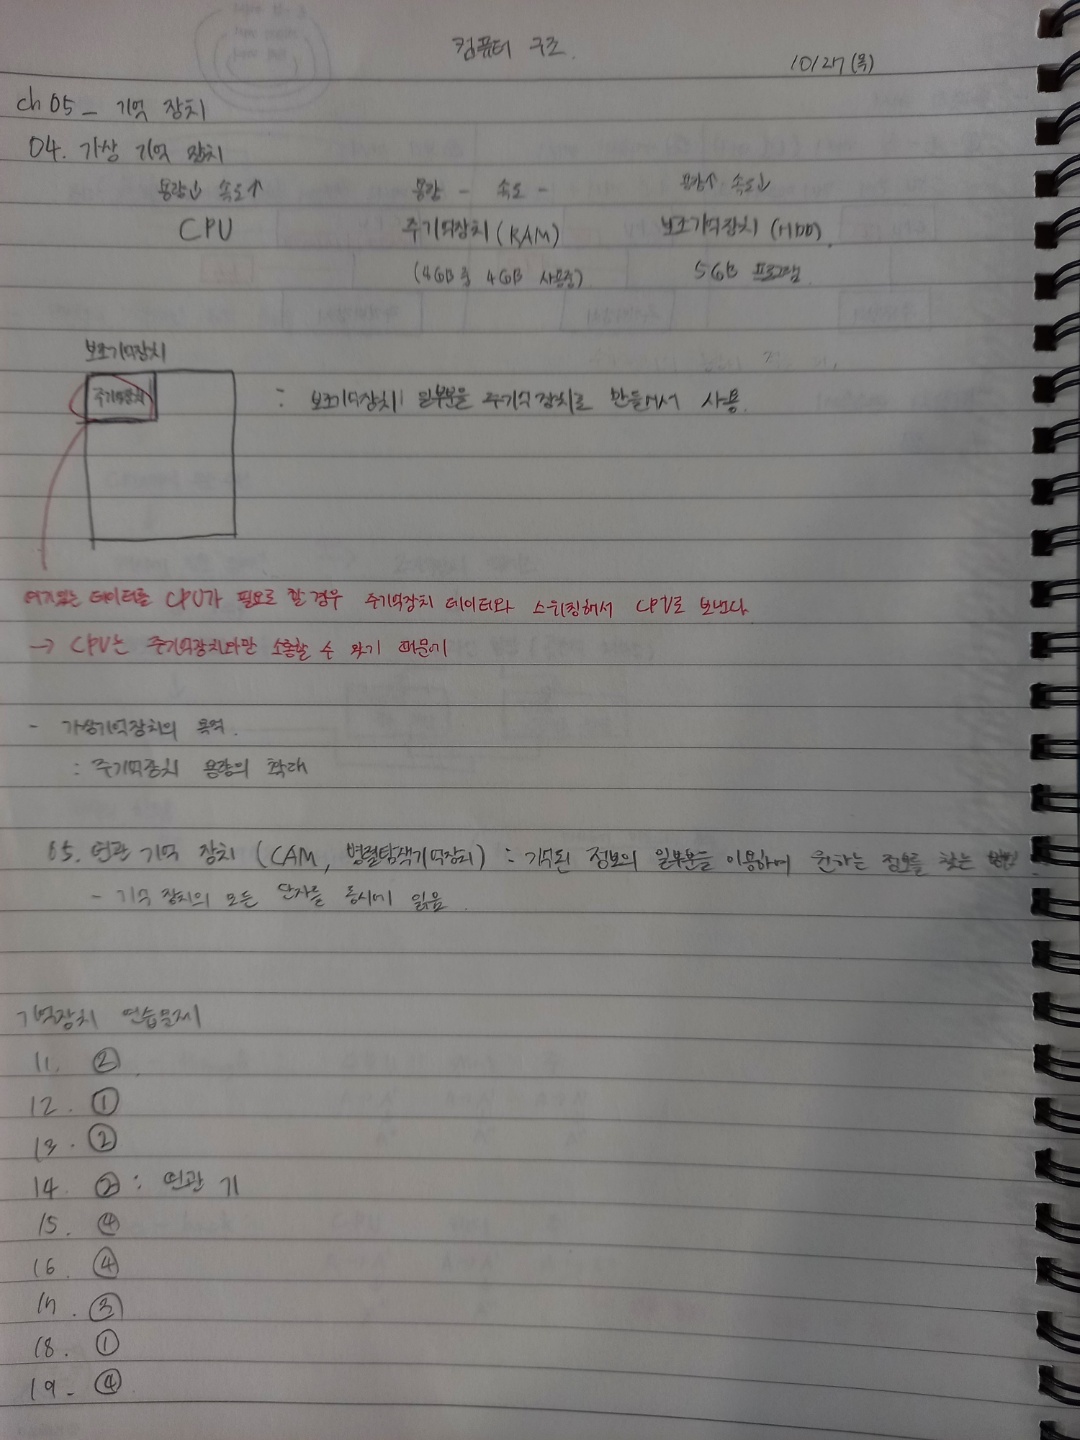 컴퓨터 구조.
10/27(목)
ch 05 _ 기억 장치
04. 가상 기억 장치
용량↓ 속도↑ 용량 - 속도 - 용량↑ 속도↓
CPU 주기억장치(RAM) 보조기억장치(HDD).
(4GB 중 4GB 사용중) 5GB 프로그램
보조기억장치
주기억장치
: 보조기억장치 일부분을 주기억장치로 만들어서 사용.
여기있는 데이터를 CPU가 필요로 할 경우 주기억장치 데이터와 스위칭해서 CPU로 보낸다
→ CPU는 주기억장치와만 소통할 수 있기 때문에
- 가상기억장치의 목적.
: 주기억장치 용량의 확대
05. 연관 기억 장치 (CAM, 병렬탐색기억장치) : 기억된 정보의 일부분을 이용하여 원하는 정보를 찾는 방법
- 기억 장치의 모든 단자를 동시에 읽음
기억장치 연습문제
11. ②
12. ①
13. ②
14. ② : 연관 기
15. ④
16. ④
17. ③
18. ①
19- ④